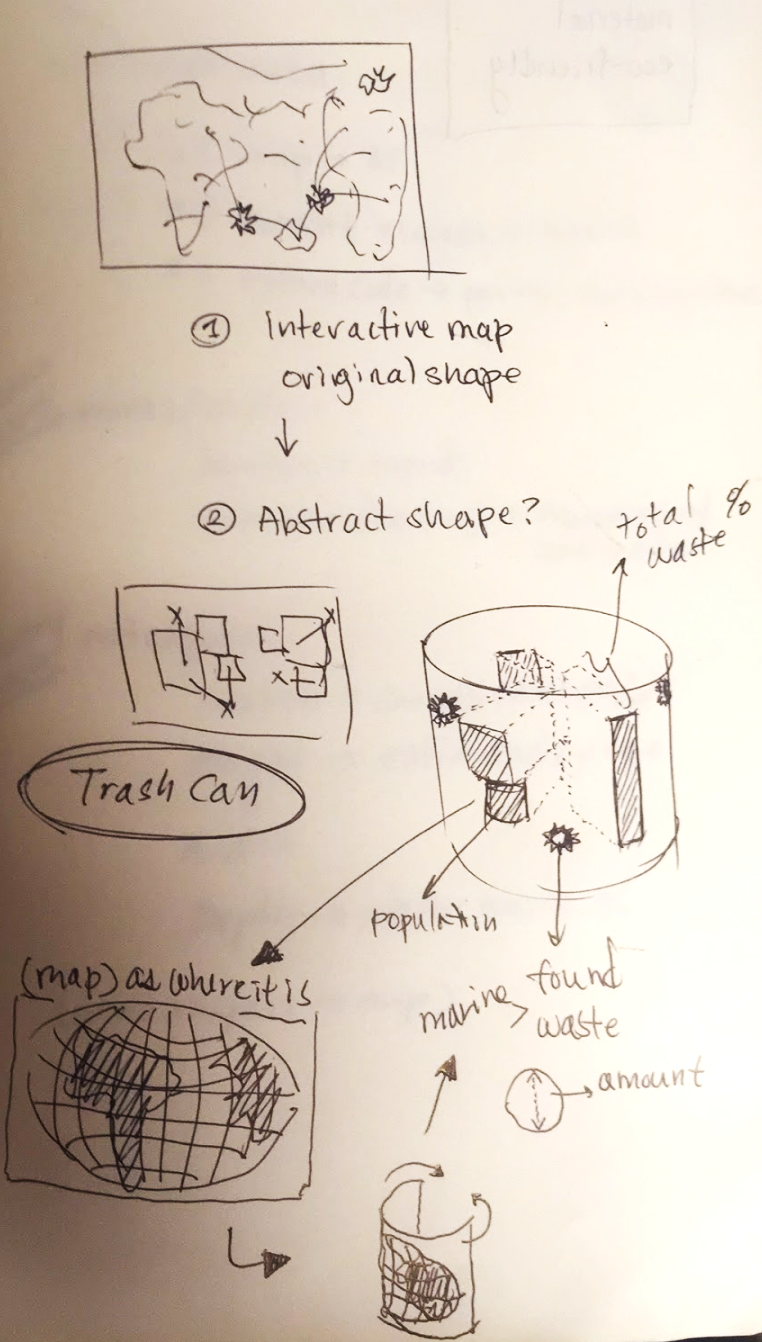 ① Interactive map
original shape
② Abstract shape?
total %
waste
Trash Can
population
(map) as where it is
marine > found
waste
amount